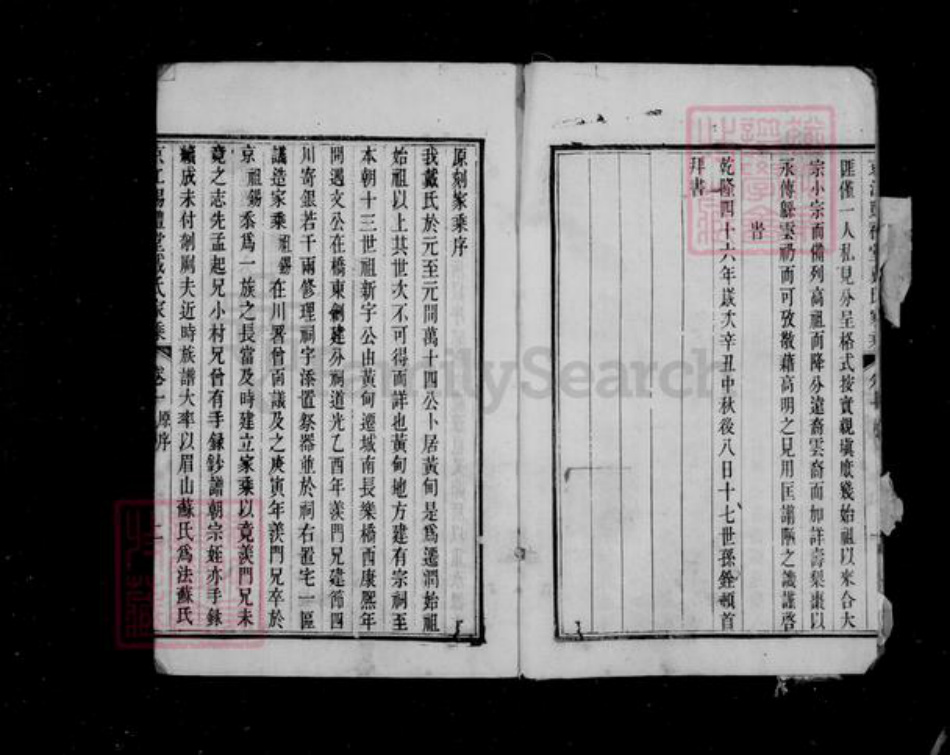 匯僅一人私見分呈格式按實親塡庶幾始祖以來合大
宗小宗而備列高祖而降分遠裔雲裔而加詳壽棃棗以
永傳緜雲礽而可攷敬藉高明之見用匡謭陋之譏謹啓
旹
乾隆四十六年歲次辛丑中秋後八日十七世孫銓頓首
拜書
原刻家乘序
我戴氏於元至元間萬十四公卜居黃甸是爲遷潤始祖
始祖以上其世次不可得而詳也黃甸地方建有宗祠至
本朝十三世祖新字公由黃甸遷城南長樂橋西康熙年
間遇文公在橋東創建分祠道光乙酉年羨門兄建節四
川寄銀若干兩修理祠宇添置祭器並於祠右置宅一區
議造家乘祖錫在川署曾面議及之庚寅年羨門兄卒於
京祖錫忝爲一族之長當及時建立家乘以竟羨門兄未
竟之志先孟起兄小村兄曾有手錄鈔譜朝宗姪亦手錄
續成未付剞劂夫近時族譜大率以眉山蘇氏爲法蘇氏
京江錫禮堂戴氏家乘 卷一 原序 二
FamilySearch